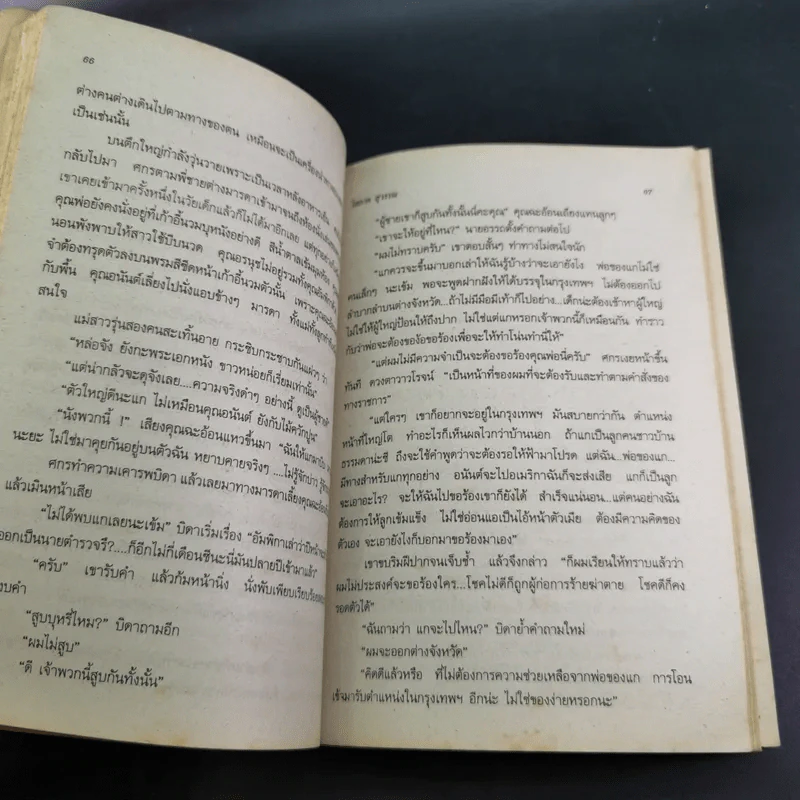 66
ต่างคนต่างเดินไปตามทางของตน เหมือนจะเป็นเครื่อง
เป็นเช่นนั้น
บนตึกใหญ่กำลังวุ่นวายเพราะเป็นเวลาหลังอาหารเย็น
กลับไปมา ศกรตามพี่ชายต่างมารดาเข้ามาจนถึงห้อง
เขาเคยเข้ามาครั้งหนึ่งในวัยเด็กแล้วก็ไม่ได้มาอีกเลย แต่ทุกอย่าง
คุณพ่อยังคงนั่งอยู่ที่เก้าอี้นวมบุหนังอย่างดี สีน้ำตาลเข้ม
นอนพังพาบให้สาวใช้บีบนวด คุณอรนุชไม่อยู่รวมทั้งคุณ
จำต้องทรุดตัวลงบนพรมสีซีดหน้าเก้าอี้นวมตัวนั้น เพราะคุณ
กับพื้น คุณอนันต์เลี่ยงไปนั่งแอบข้างๆ มารดา ทั้งแม่ทั้งลูก
สนใจ
แม่สาวรุ่นสองคนสะเทิ้นอาย กระซิบกระซาบกันแผ่วๆ ว่า
“หล่อจัง ยังกะพระเอกหนัง ขาวหน่อยก็เรี่ยมเท่านั้น”
“แต่น่ากลัวจะดุจังเลย....ความจริงดำๆ อย่างนี้ ดูเป็น
“ตัวใหญ่ดีนะแก ไม่เหมือนคุณอนันต์ ยังกับไม้ควักปูน”
“นังพวกนี้ !” เสียงคุณฉะอ้อนแหวขึ้นมา “ฉันให้แกมา
นะยะ ไม่ใช่มาคุยกันอยู่บนตัวฉัน หยาบคายจริงๆ ....ไม่รู้จักบ่าว
ศกรทำความเคารพบิดา แล้วเลยมาทางมารดาเลี้ยงคุณฉะอ้อน
แล้วเมินหน้าเสีย
“ไม่ได้พบแกเลยนะเข้ม” บิดาเริ่มเรื่อง “อัมพิกาเล่าว่าปีหน้า
ออกเป็นนายตำรวจรึ?....ก็อีกไม่กี่เดือนซีนะนี่มันปลายปีเข้ามาแล้ว”
“ครับ” เขารับคำ แล้วก้มหน้านิ่ง นั่งพับเพียบเรียบร้อย
รับคำ
“สูบบุหรี่ไหม?” บิดาถามอีก
“ผมไม่สูบ”
“ดี เจ้าพวกนี้สูบกันทั้งนั้น”
67
“ผู้ชายเขาก็สูบกันทั้งนั้นนี่คะคุณ” คุณฉะอ้อนเถียงแทนลูกๆ
“เขาจะให้อยู่ที่ไหน?” นายอรรถตั้งคำถามต่อไป
“ผมไม่ทราบครับ” เขาตอบสั้นๆ ท่าทางไม่สนใจนัก
“แกควรจะขึ้นมาบอกเล่าให้ฉันรู้บ้างว่าจะเอายังไง พ่อของแกไม่ใช่
คนเล็กๆ นะเข้ม พอจะพูดฝากฝังให้ได้บรรจุในกรุงเทพฯ ไม่ต้องออกไป
ลำบากลำบนต่างจังหวัด...ถ้าไม่มีมือมีเท้าก็ไปอย่าง...เด็กน่ะต้องเข้าหาผู้ใหญ่
ไม่ใช่ให้ผู้ใหญ่ป้อนให้ถึงปาก ไม่ใช่แต่แกหรอกเจ้าพวกนี้ก็เหมือนกัน ทำราว
กับว่าพ่อจะต้องง้อขอร้องเพื่อจะให้ทำโน่นทำนี่ให้”
“แต่ผมไม่มีความจำเป็นจะต้องขอร้องคุณพ่อนี่ครับ” ศกรเงยหน้าขึ้น
ทันที ดวงตาวาวโรจน์ “เป็นหน้าที่ของผมที่จะต้องรับและทำตามคำสั่งของ
ทางราชการ”
“แต่ใครๆ เขาก็อยากจะอยู่ในกรุงเทพฯ มันสบายกว่ากัน ตำแหน่ง
หน้าที่ใหญ่โต ทำอะไรก็เห็นผลไวกว่าบ้านนอก ถ้าแกเป็นลูกคนชาวบ้าน
ธรรมดาน่ะซี ถึงจะใช้คำพูดว่าจะต้องรอให้ฟ้ามาโปรด แต่ฉัน..พ่อของแก...
มีทางสำหรับแกทุกอย่าง อนันต์จะไปอเมริกาฉันก็จะส่งเสีย แกก็เป็นลูก
จะเอาอะไร? จะให้ฉันไปขอร้องเขาก็ยังได้ สำเร็จแน่นอน...แต่คนอย่างฉัน
ต้องการให้ลูกเข้มแข็ง ไม่ใช่อ่อนแอเป็นไอ้หน้าตัวเมีย ต้องมีความคิดของ
ตัวเอง จะเอายังไงก็บอกมาขอร้องมาเอง”
เขาขบริมฝีปากจนเจ็บช้ำ แล้วจึงกล่าว “ก็ผมเรียนให้ทราบแล้วว่า
ผมไม่ประสงค์จะขอร้องใคร...โชคไม่ดีก็ถูกผู้ก่อการร้ายฆ่าตาย โชคดีก็คง
รอดตัวได้”
“ฉันถามว่า แกจะไปไหน?” บิดาย้ำคำถามใหม่
“ผมจะออกต่างจังหวัด”
“คิดดีแล้วหรือ ที่ไม่ต้องการความช่วยเหลือจากพ่อของแก การโอน
เข้ามารับตำแหน่งในกรุงเทพฯ อีกน่ะ ไม่ใช่ของง่ายหรอกนะ”